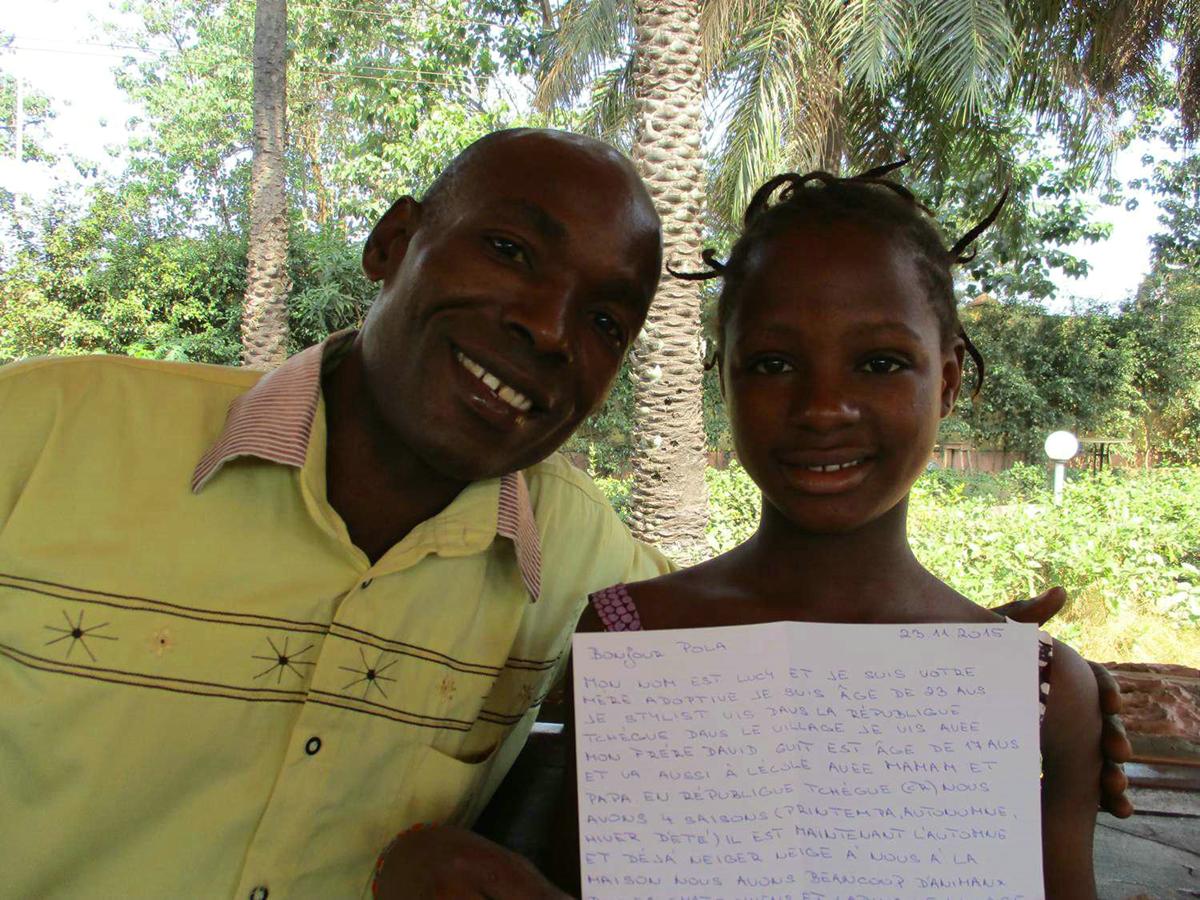 23.11.2015
BONJOUR POLA
MON NOM EST LUCY ET JE SUIS VOTRE
MÈRE ADOPTIVE JE SUIS ÂGE DE 23 AUS
JE STYLIST VIS DAUS LA RÉPUBLIQUE
TCHÈQUE DAUS LE VILLAGE JE VIS AVEE
MON FRÉRE DAVID QUIT EST ÂGE DE 17 AUS
ET VA AUSSI À LÉCOLE AVEE MAMAM ET
PAPA EN RÉPUBLIQUE TCHÉQUE (ČR) NOUS
AVONS 4 SAISONS (PRINTEMPA, AUTONOMNE,
HIVER D'ETE') IL EST MAINTENANT L'AUTOMNE
ET DÉJÀ NEIGER NEIGE A' NOUS A' LA
MAISON NOUS AVONS BEANCOUP D'ANIMANX